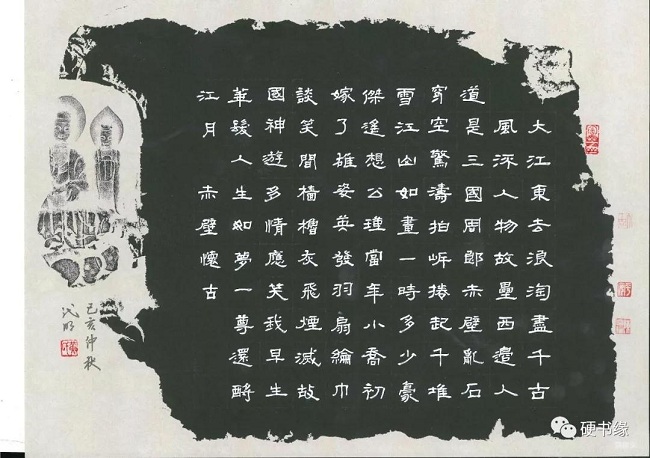 大江東去浪淘盡千古
風流人物故壘西邊人
道是三國周郎赤壁亂石
穿空驚濤拍岸捲起千堆
雪江山如畫一時多少豪
傑遙想公瑾當年小喬初
嫁了雄姿英發羽扇綸巾
談笑間檣櫓灰飛煙滅故
國神遊多情應笑我早生
華髮人生如夢一尊還酹
江月 赤壁懷古
己亥仲秋
硬书缘